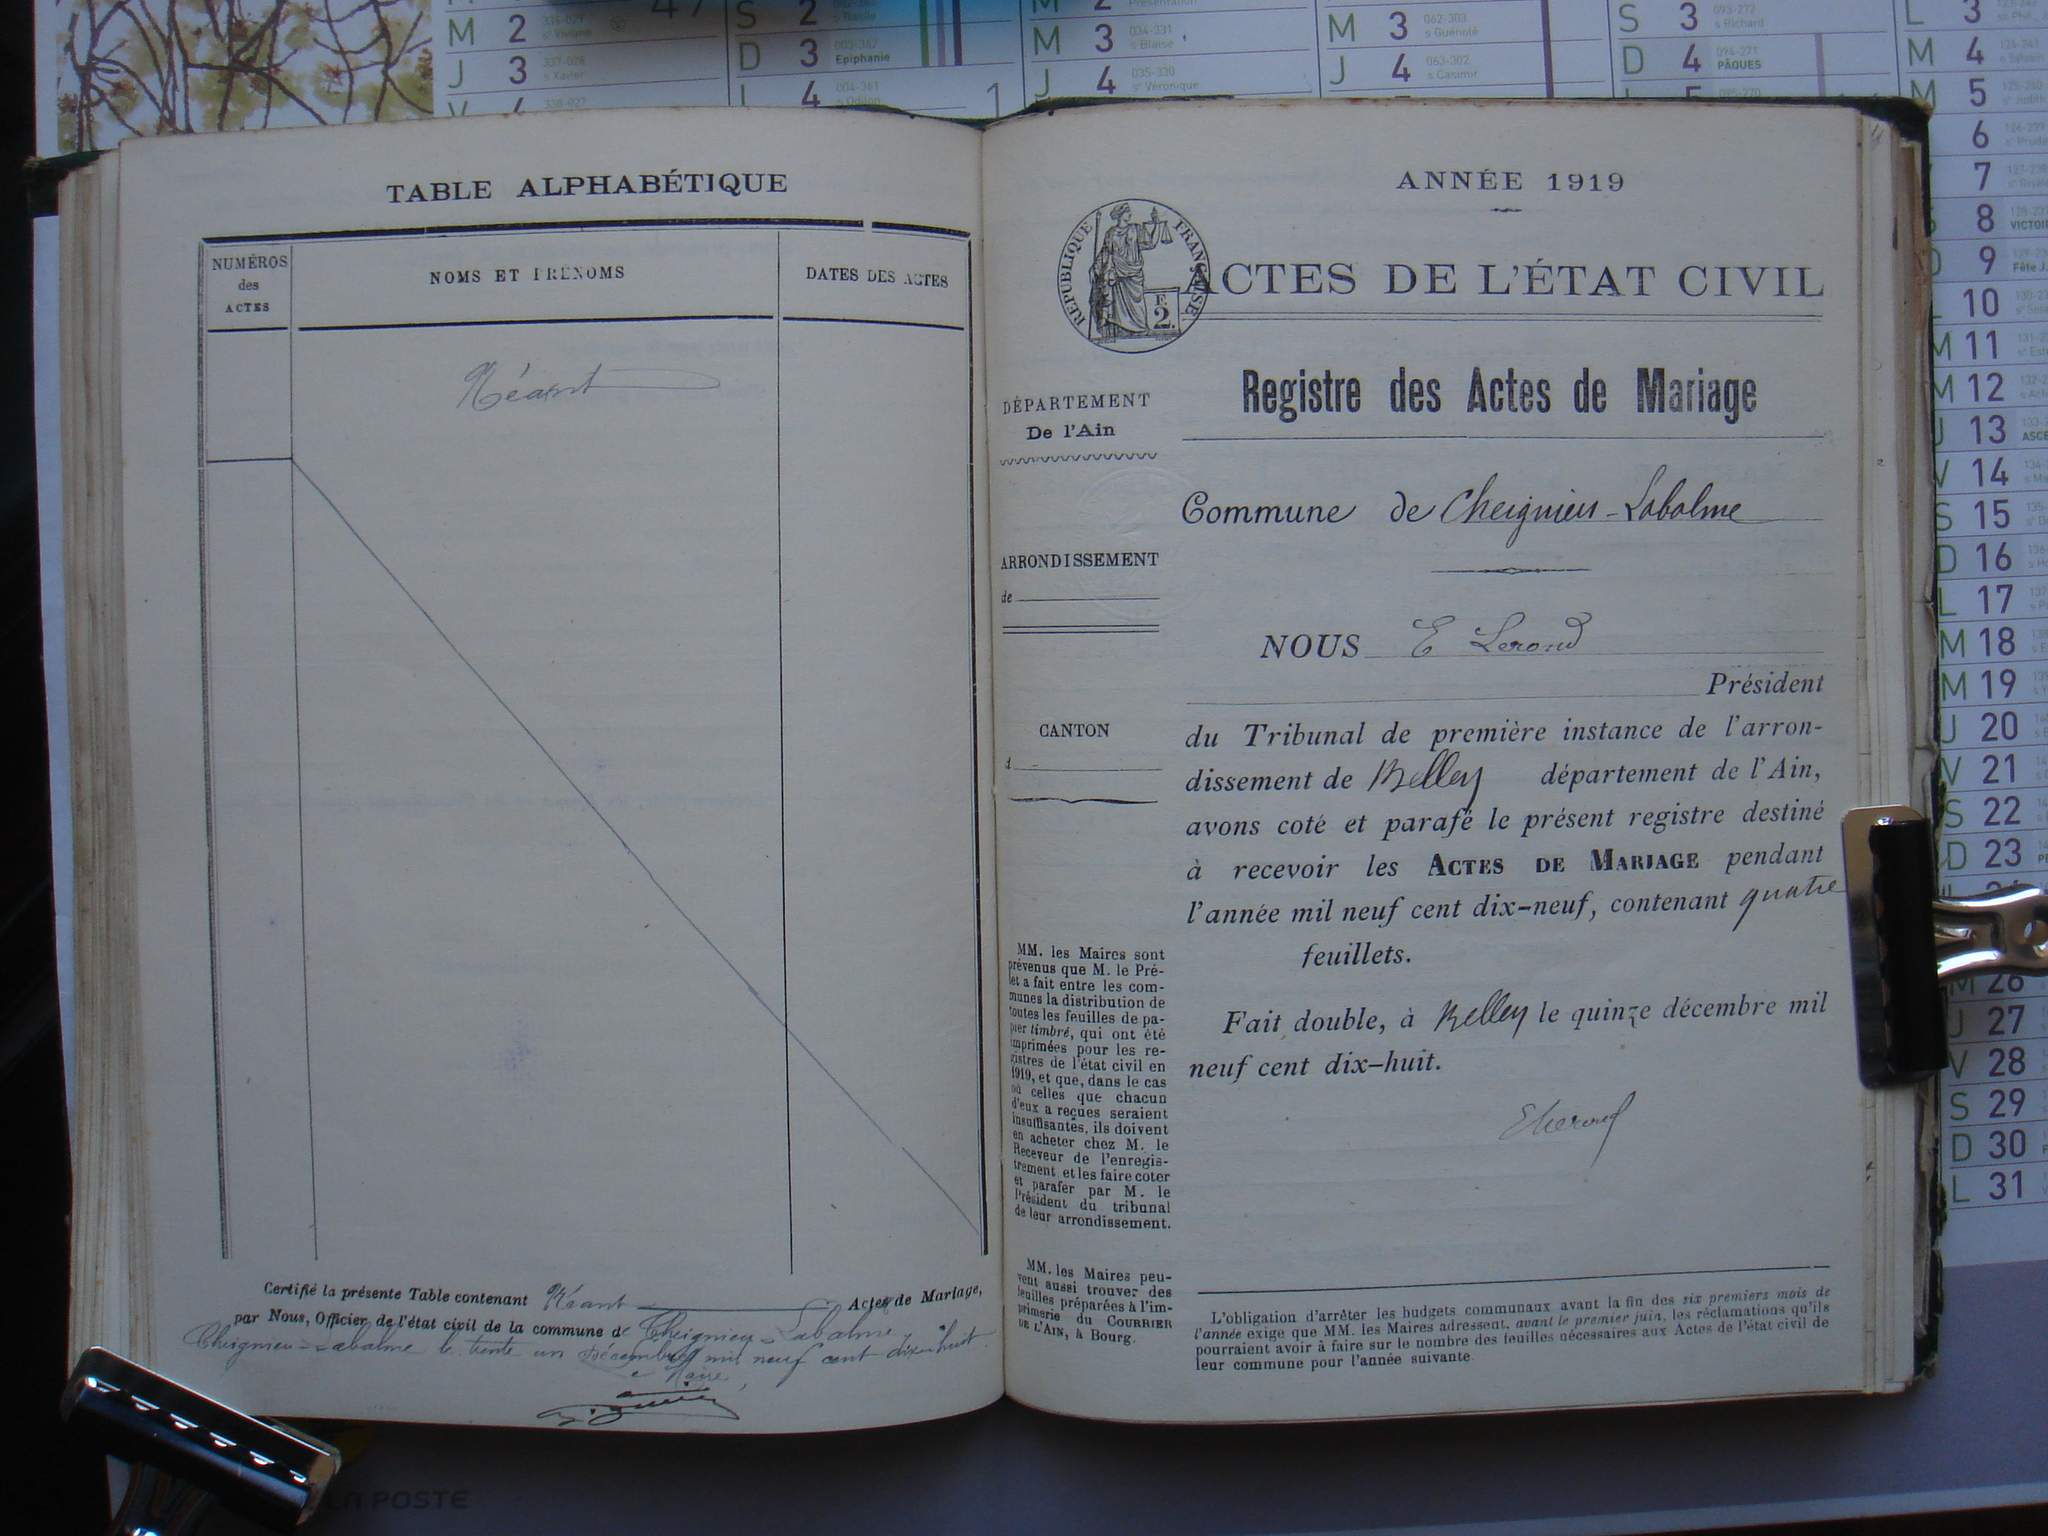 TABLE ALPHABÉTIQUE
NUMÉROS
des
ACTES
NOMS ET PRÉNOMS
DATES DES ACTES
Néant
Certifié la présente Table contenant Néant Actes de Mariage,
par Nous, Officier de l'état civil de la commune de Cheignieu-Labalme
Cheignieu-Labalme le trente un Décembre mil neuf cent dix-huit
Le Maire,
ANNÉE 1919
RÉPUBLIQUE FRANÇAISE
F.
2.
ACTES DE L'ÉTAT CIVIL
Registre des Actes de Mariage
DÉPARTEMENT
De l'Ain
Commune de Cheignieu-Labalme
ARRONDISSEMENT
de
NOUS E Lerond
Président
CANTON
d
du Tribunal de première instance de l'arron-
dissement de Belley département de l'Ain,
avons coté et parafé le présent registre destiné
à recevoir les ACTES DE MARIAGE pendant
l'année mil neuf cent dix-neuf, contenant quatre
feuillets.
Fait double, à Belley le quinze décembre mil
neuf cent dix-huit.
ELerond
MM. les Maires sont
prévenus que M. le Pré-
fet a fait entre les com-
munes la distribution de
toutes les feuilles de pa-
pier timbré, qui ont été
imprimées pour les re-
gistres de l'état civil en
1919, et que, dans le cas
où celles que chacun
d'eux a reçues seraient
insuffisantes, ils doivent
en acheter chez M. le
Receveur de l'enregis-
trement, et les faire coter
et parafer par M. le
Président du tribunal
de leur arrondissement.
MM. les Maires peu-
vent aussi trouver des
feuilles préparées à l'im-
primerie du COURRIER
DE L'AIN, à Bourg.
L'obligation d'arrêter les budgets communaux avant la fin des six premiers mois de
l'année exige que MM. les Maires adressent, avant le premier juin, les réclamations qu'ils
pourraient avoir à faire sur le nombre des feuilles nécessaires aux Actes de l'état civil de
leur commune pour l'année suivante.
M 2
J 3 s Xavier
S 2
D 3 003-362 Epiphanie
L 4 004-361 s Odilon
M 2 Présentation
M 3 034-331 s Blaise
J 4 035-330 se Véronique
M 3 062-303 s Guénolé
J 4 063-302 s Casimir
S 3 093-272 s Richard
D 4 094-271 PÂQUES
L 3
M 4
M 5
6
7
8 VICTOI
9 Fête J.
10
M 11
M 12
J 13 ASCE
V 14
S 15
D 16
L 17
M 18
M 19
J 20
V 21
S 22
D 23
M 26
J 27
V 28
S 29
D 30
L 31
LA POSTE